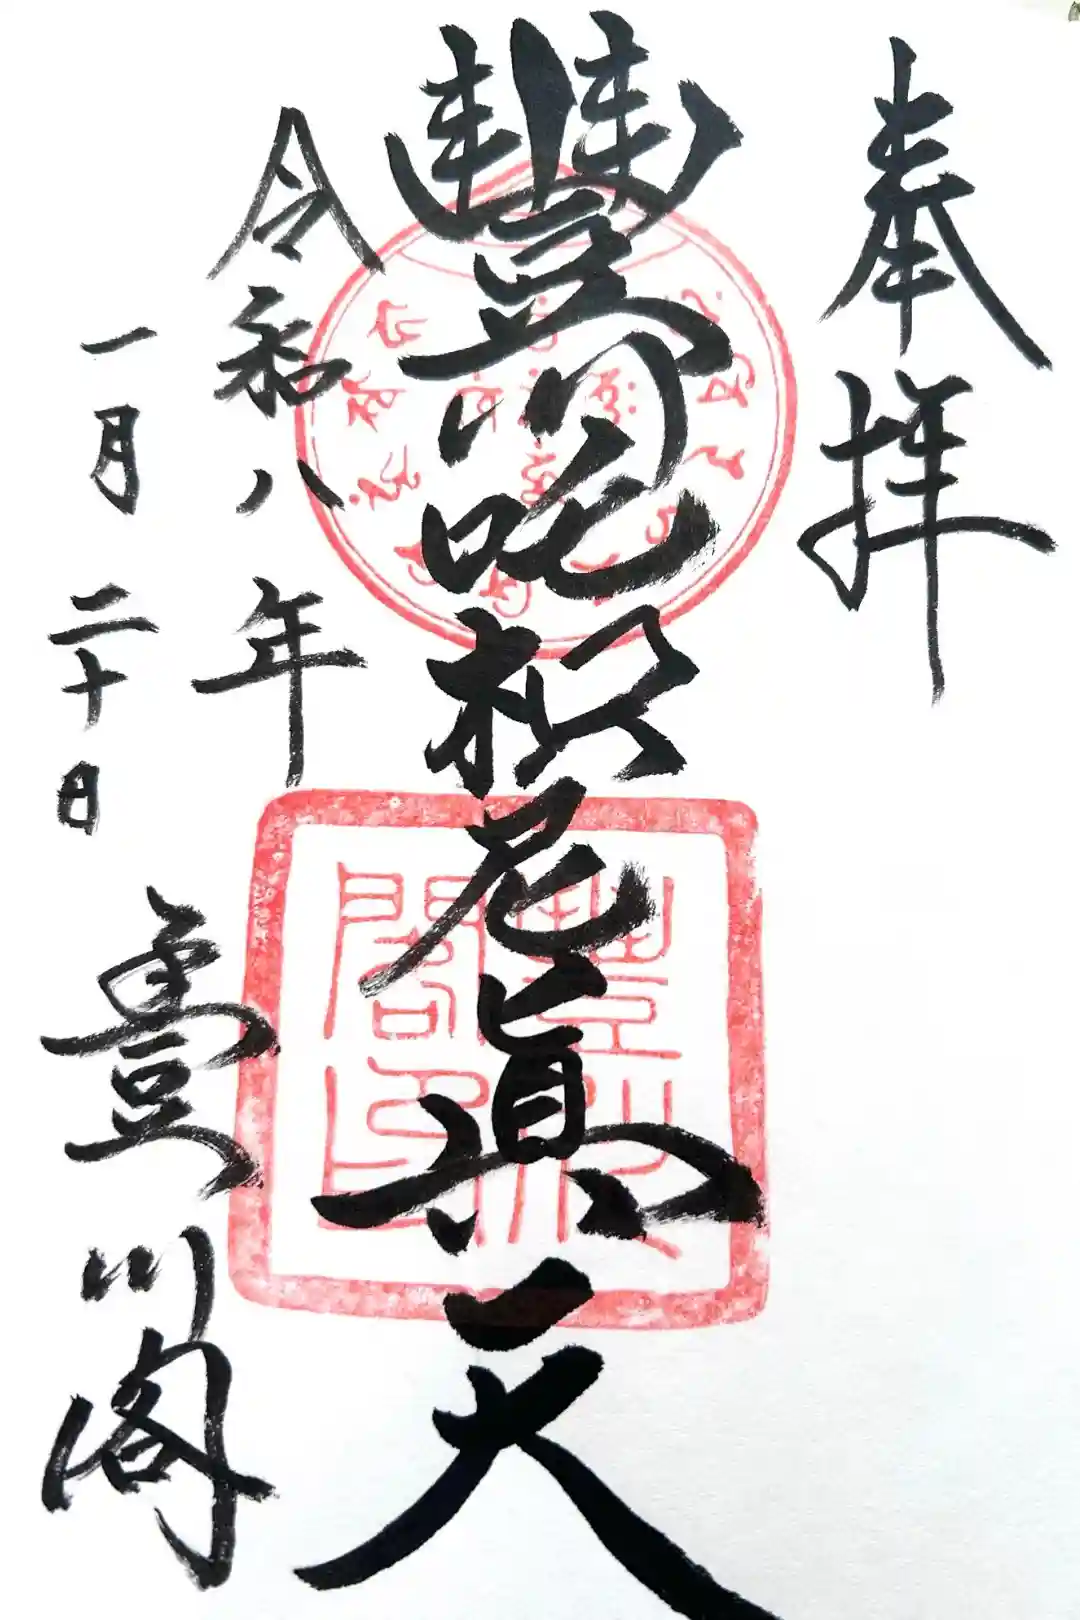 奉拝
豐川吒枳尼眞天
令和八年
一月二十日
豊川閣
豊川閣印